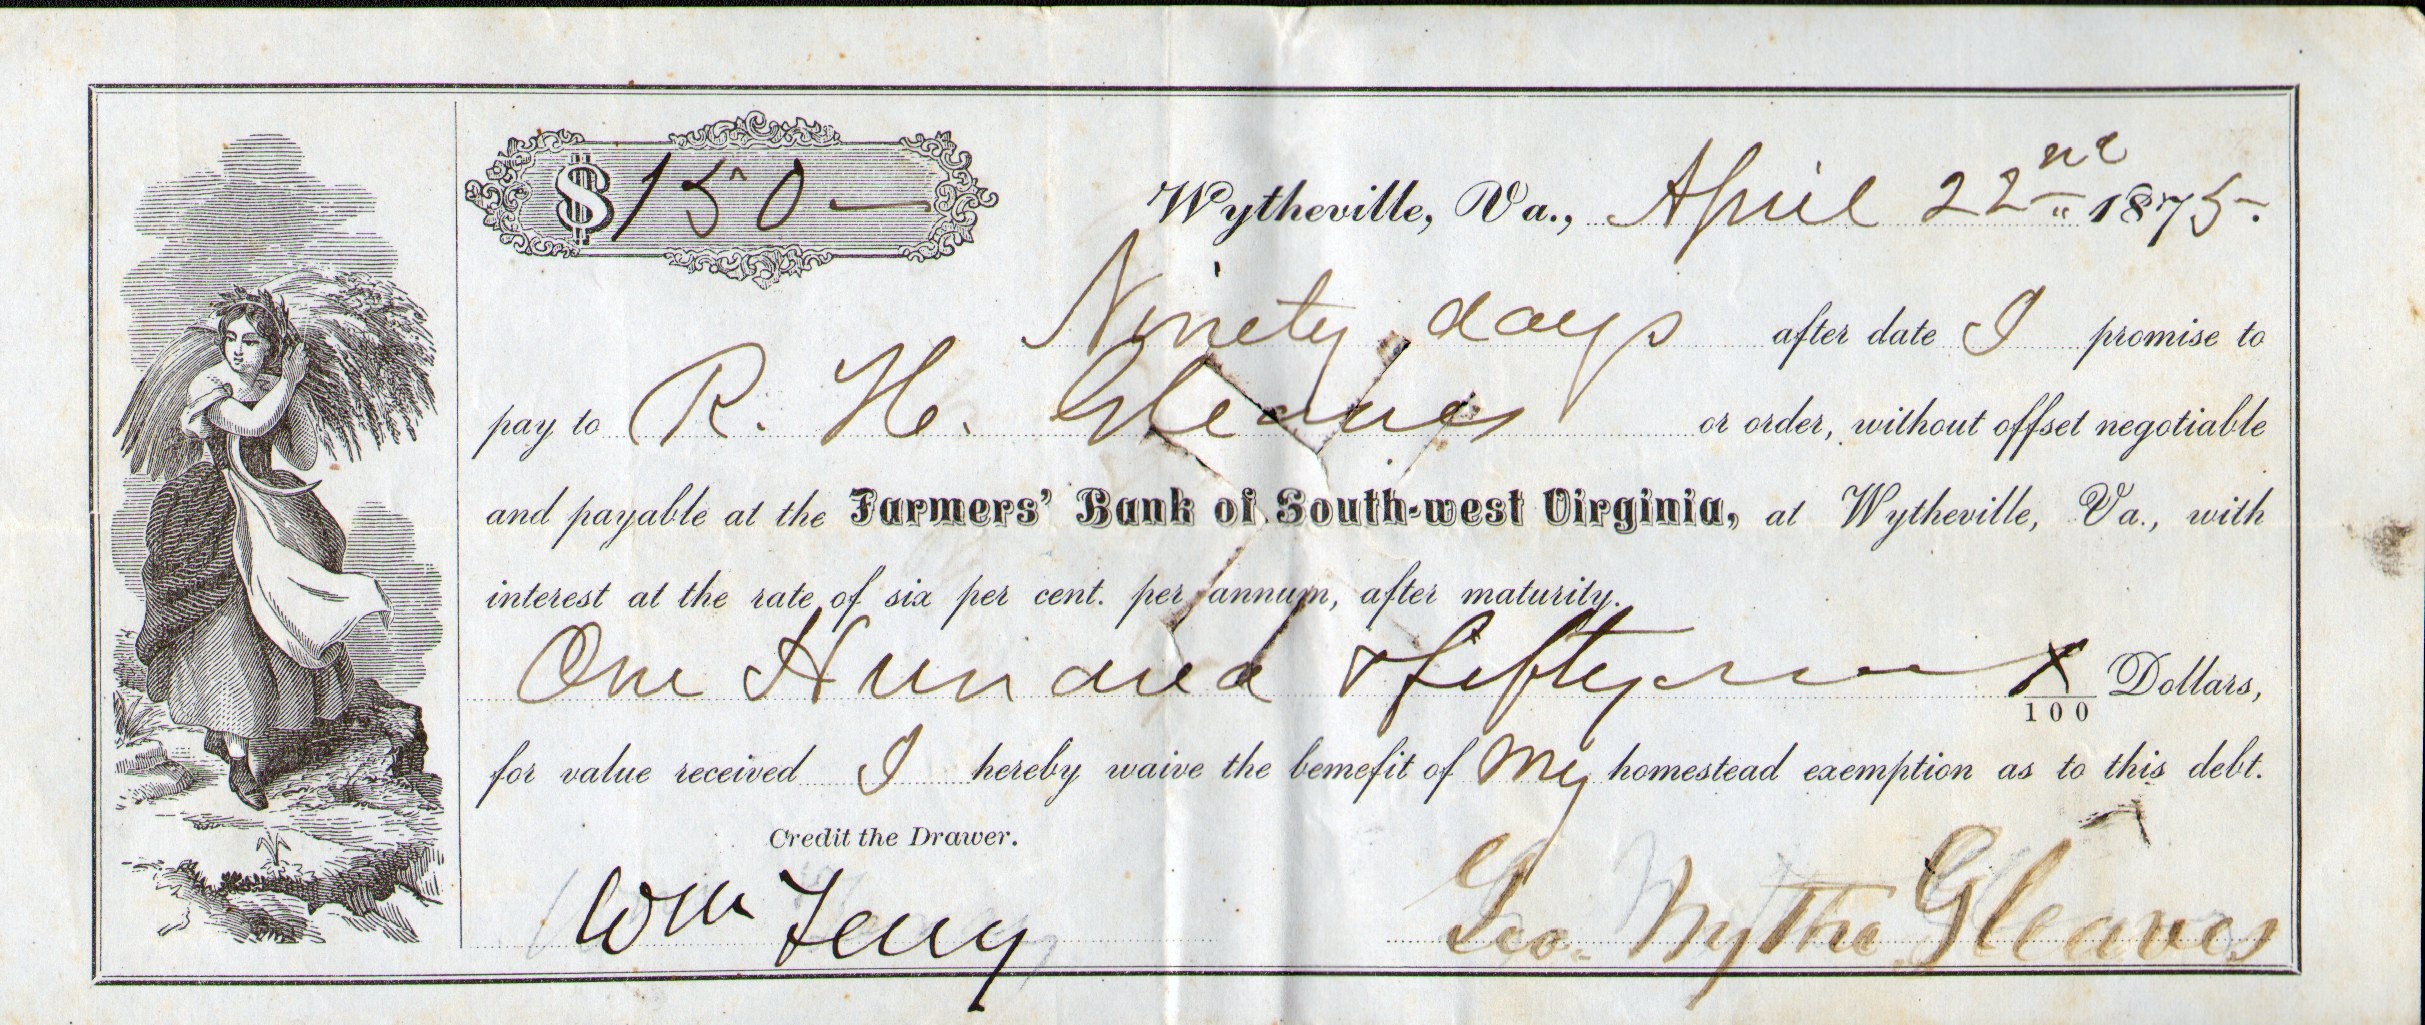 $150—
Wytheville, Va., April 22nd 1875.
Ninety days after date I promise to
pay to R. H. Gleaves or order, without offset negotiable
and payable at the Farmers' Bank of South-west Virginia, at Wytheville, Va., with
interest at the rate of six per cent. per annum, after maturity.
One Hundred & fifty x/100 Dollars,
for value received I hereby waive the bemefit of my homestead exemption as to this debt.
Credit the Drawer.
Wm Terry
Geo. Wythe Gleaves